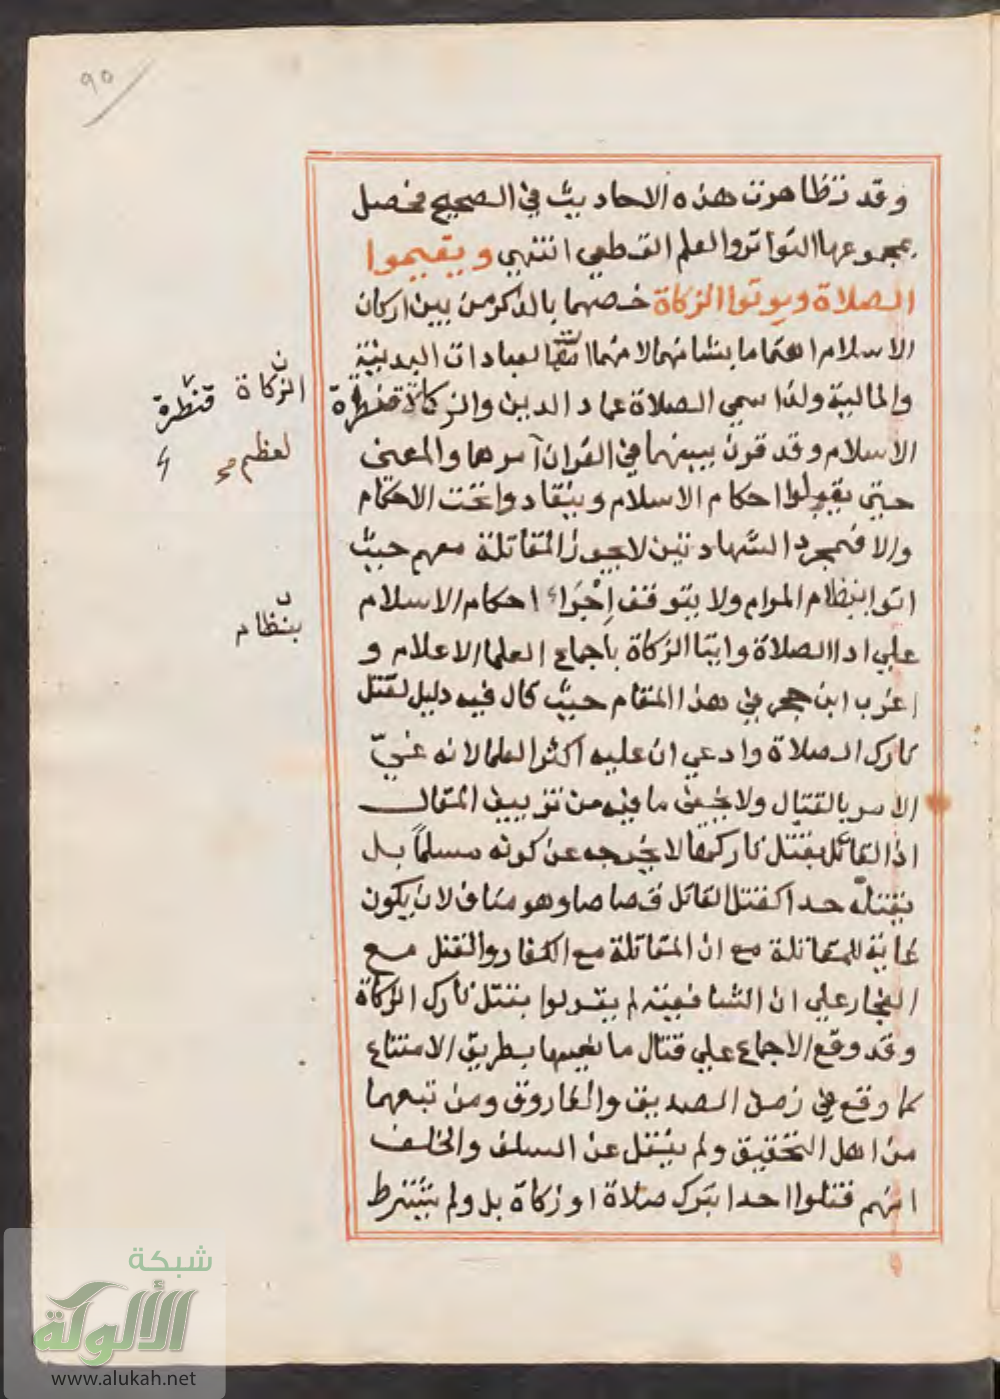 ٩٥
وقد تظاهرت هذه الاحاديث في الصحيح فحصل
بمجموعها التواتر والعلم القطعي انتهي ويقيموا
الصلاة ويوتوا الزكاة خصهما بالذكر من بين اركان
الاسلام اهتماما بشانهما لانهما العبادات البدنية
والمالية ولذا سمي الصلاة عماد الدين والزكاة قنطرة
الاسلام وقد قرن بينهما في القران آمرهما والمعني
حتي يقبلوا احكام الاسلام وينقادوا تحت الاحكام
والا فمجرد الشهادتين لا يجوز المقاتلة معهم حيث
اتوا بنظام المرام ولا يتوقف إجْرَاء احكام الاسلام
علي ادا الصلاة وايتا الزكاة باجماع العلما الاعلام و
اغرب ابن حجر في هذا المقام حيث قال فيه دليل لقتل
تارك الصلاة وادعي ان عليه اكثر العلما لانه غيّ
الامر بالقتال ولا يخفي ما فيه من تزييف المقال
اذ القائل بقتل تاركها لا يخرجه عن كونه مسلماً بل
يقتله حدا كقتل القاتل قصاصا وهو مناف لان يكون
غاية للمقاتلة مع ان المقاتلة مع الكفار والقتل مع
الفجار علي ان الشافعية لم يقولوا بقتل تارك الزكاة
وقد وقع الاجماع علي قتال مانعيها بطريق الامتناع
كما وقع في زمن الصديق والفاروق ومن تبعهما
من اهل التحقيق ولم ينقل عن السلف والخلف
انهم قتلوا احدا بترك صلاة او زكاة بل ولم يشترط
ن
الزكاة قنطرة
لعظم
ن
بنظام
شبكة
الألوكة
www.alukah.net